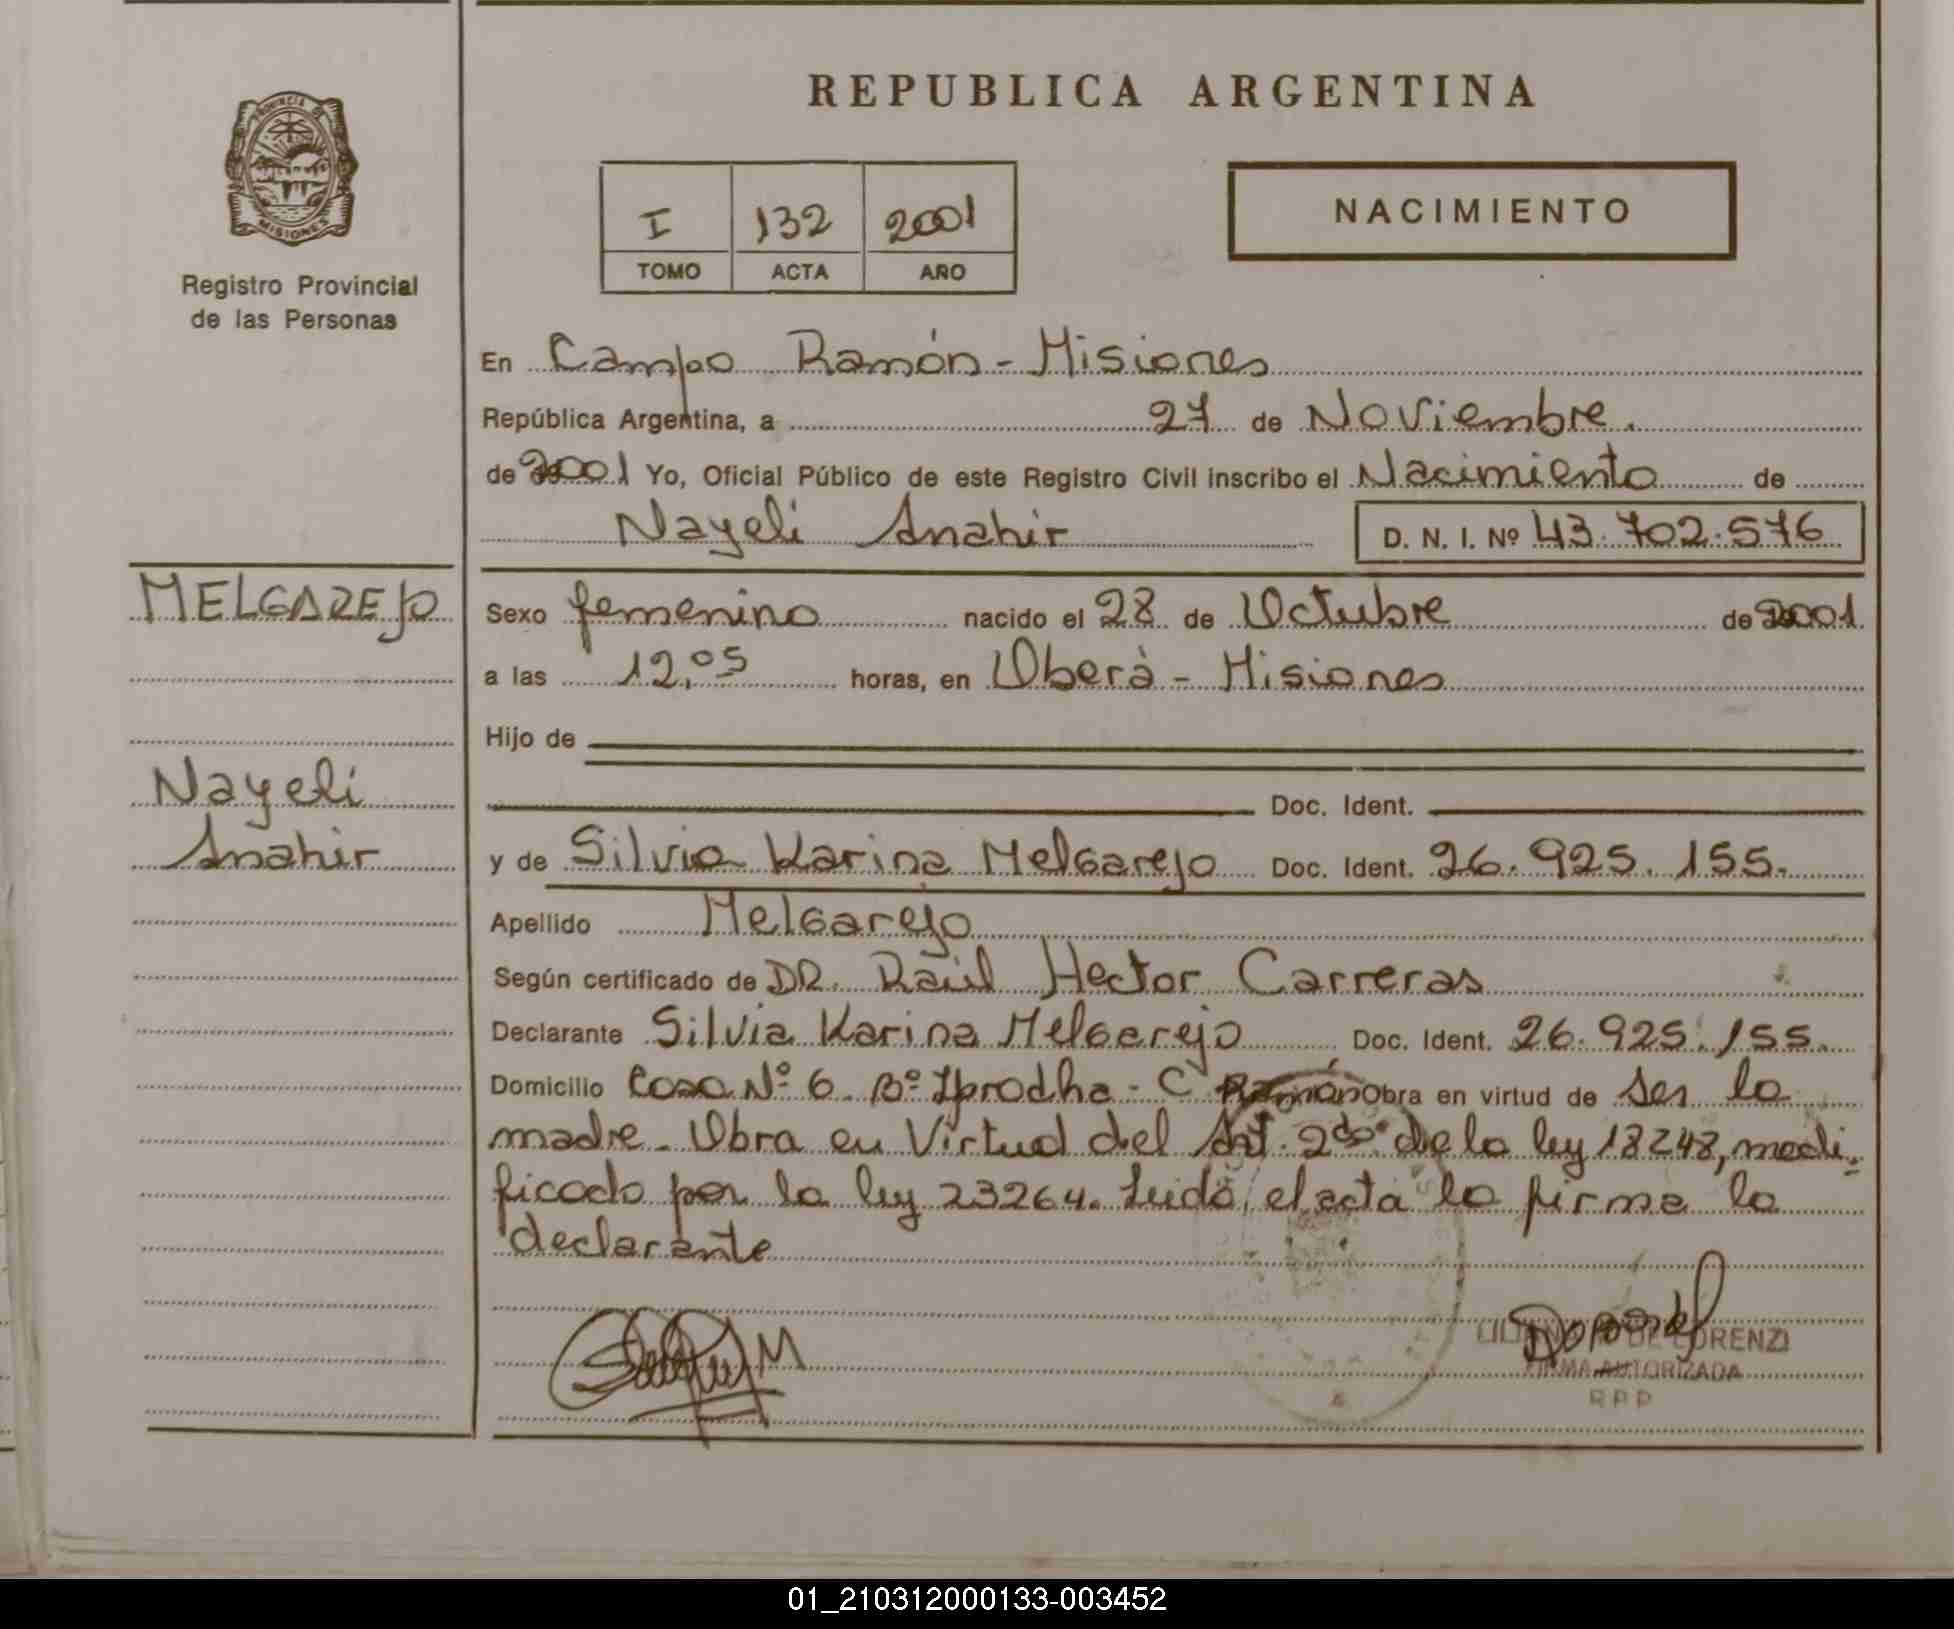 REPUBLICA ARGENTINA
PROVINCIA DE
MISIONES
Registro Provincial
de las Personas
I 132 2001
TOMO ACTA AÑO
NACIMIENTO
En Campo Ramón - Misiones
República Argentina, a 27 de Noviembre.
de 2001 Yo, Oficial Público de este Registro Civil inscribo el Nacimiento de
Nayeli Anahir D. N. I. Nº 43.702.576
MELGAREJO
Nayeli
Anahir
Sexo femenino nacido el 28 de Octubre de 2001
a las 12,05 horas, en Oberà - Misiones
Hijo de
Doc. Ident.
y de Silvia Karina Melgarejo Doc. Ident. 26.925.155.
Apellido Melgarejo
Según certificado de DR. Raúl Hector Carreras
Declarante Silvia Karina Melgarejo Doc. Ident. 26.925.155.
Domicilio Casa Nº 6 Bº Iprodha - C Ramón Obra en virtud de ser la
madre. Obra en Virtud del Art. 2do de la ley 18248, modi-
ficado por la ley 23264. Leida el acta la firma la
declarante
DE LORENZI
FIRMA AUTORIZADA
R P P
01_210312000133-003452